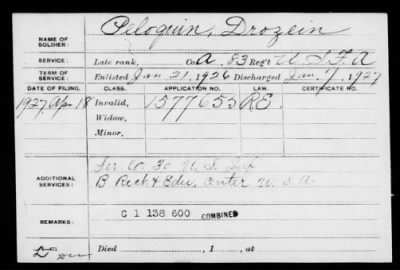 NAME OF SOLDIER: Peloquin, Drozein
SERVICE: Late rank, Co. A, 83 Reg't U S F A
TERM OF SERVICE: Enlisted Jan 21, 1926 Discharged Jan. 7, 1927
DATE OF FILING. CLASS. APPLICATION NO. LAW. CERTIFICATE NO.
1927, Apr. 18 Invalid, 1577655 R.E.
Widow,
Minor,
ADDITIONAL SERVICES: Ser. Co. 30 U. S. Inf
B Rech & Edu, Center U. S A
REMARKS: C 1 138 600 COMBINED
Died , 1 , at